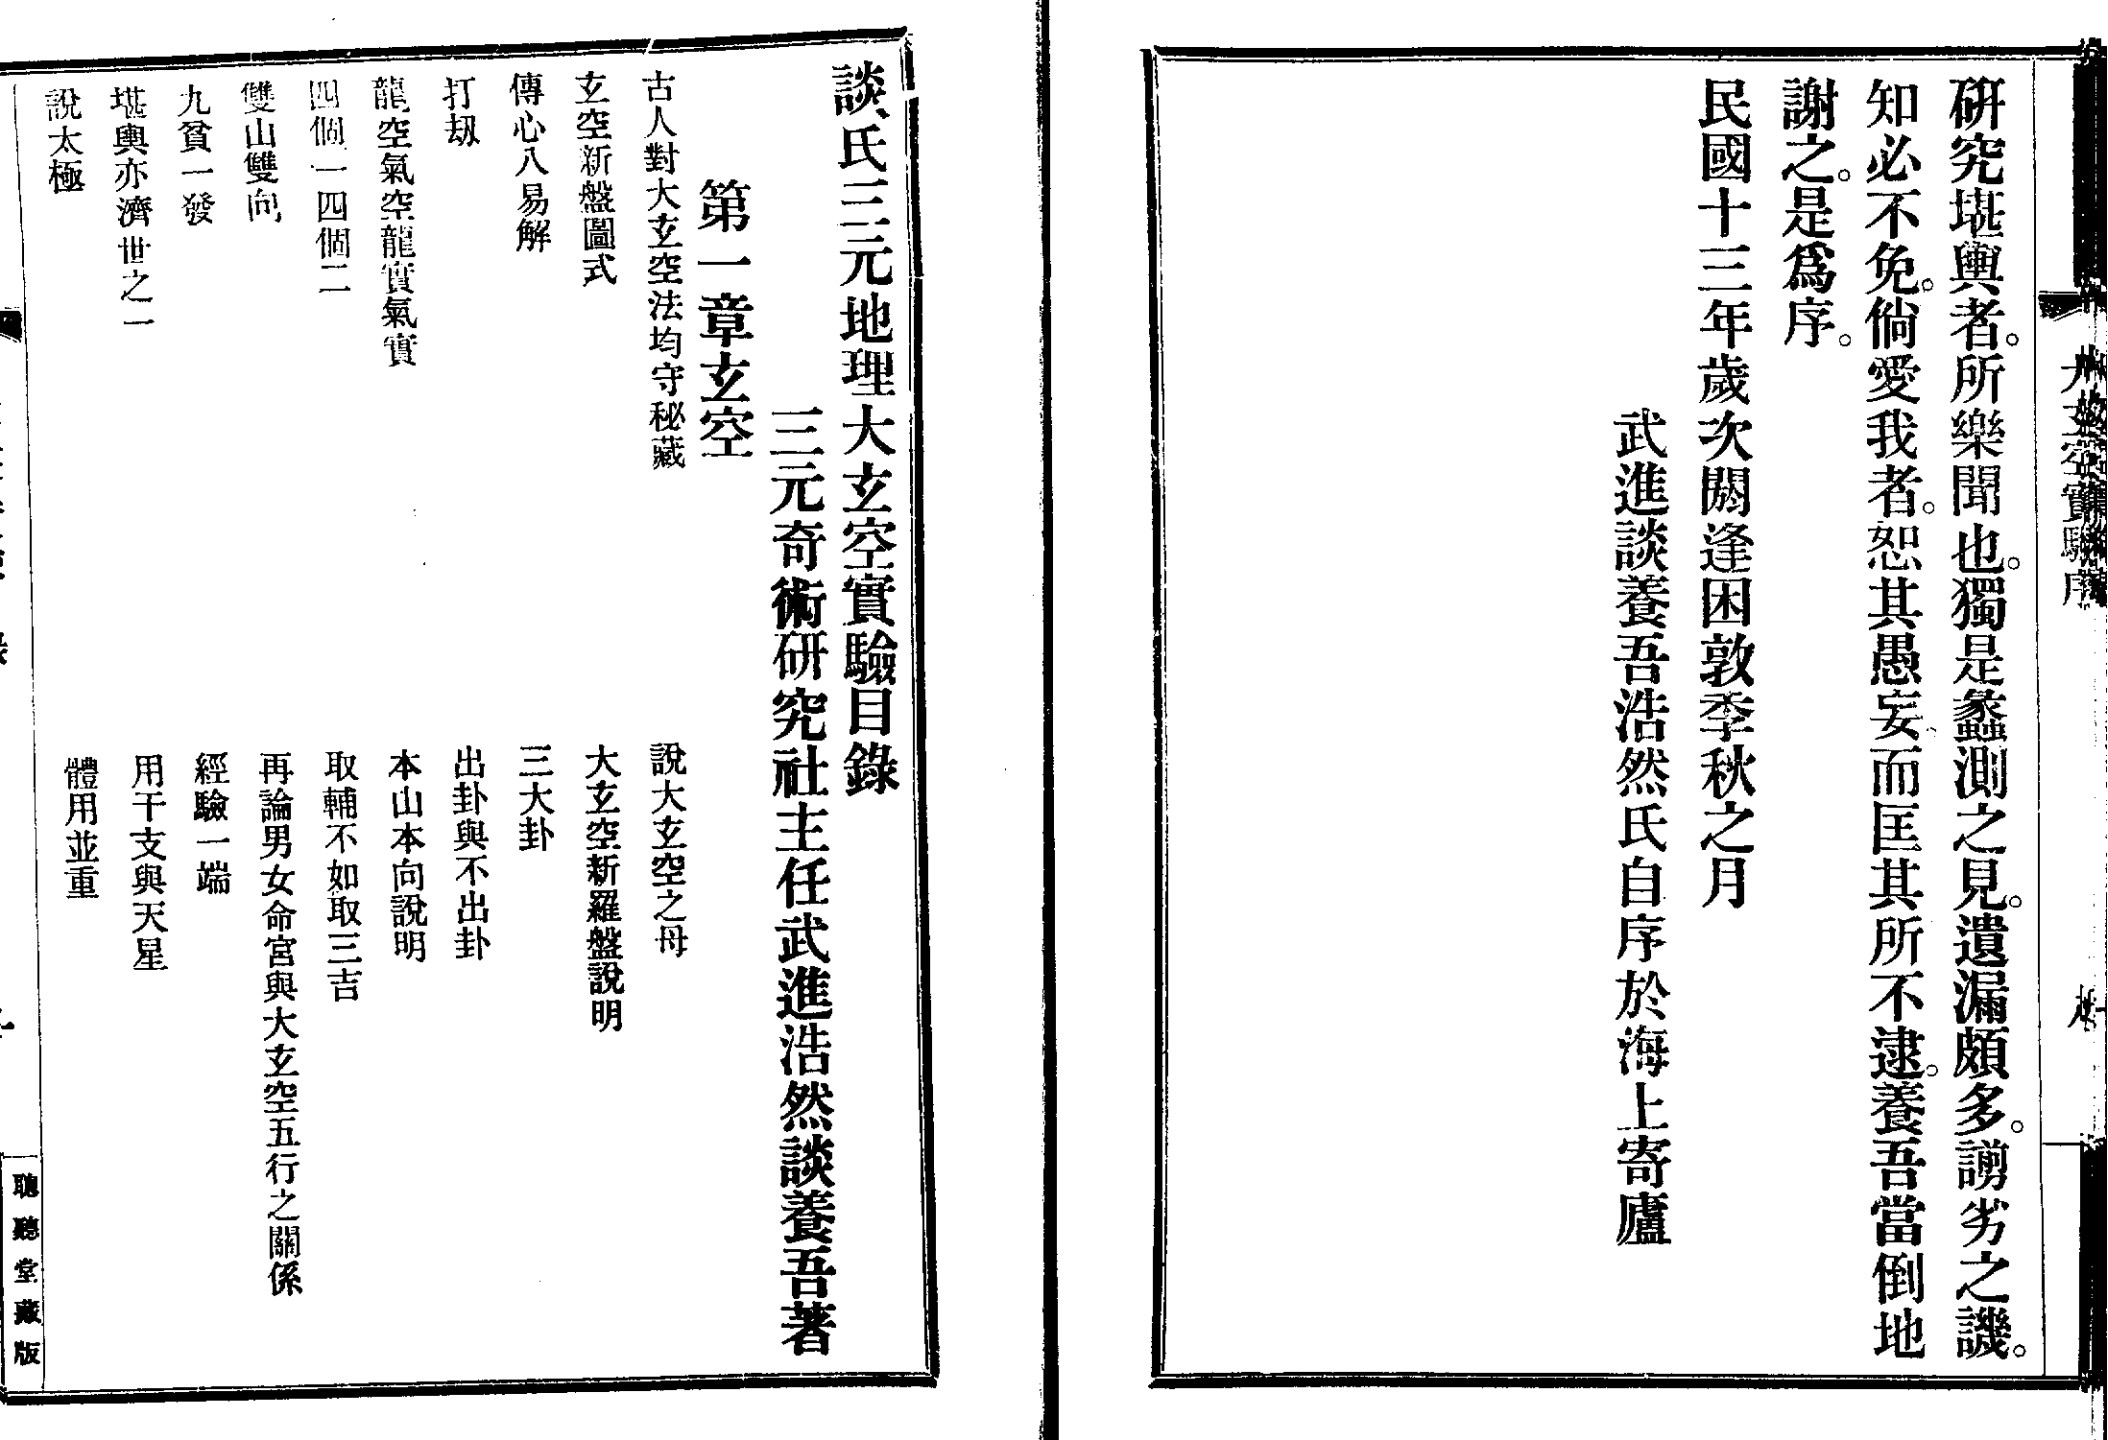 研究堪輿者。所樂聞也。獨是蠡測之見。遺漏頗多。謭劣之譏。
知必不免。倘愛我者。恕其愚妄、而匡其所不逮。養吾當倒地
謝之。是爲序。
民國十三年歲次閼逢困敦季秋之月
武進談養吾浩然氏自序於海上寄廬
談氏三元地理大玄空實驗目錄
三元奇術研究社主任武進浩然談養吾著
第一章玄空
古人對大玄空法均守秘藏
說大玄空之母
玄空新盤圖式
大玄空新羅盤說明
傳心八易解
三大卦
打刼
出卦與不出卦
龍空氣空龍實氣實
本山本向說明
四個一四個二
取輔不如取三吉
雙山雙向
再論男女命宮與大玄空五行之關係
九貧一發
經驗一端
堪輿亦濟世之一
用干支與天星
說太極
體用並重
聰聽堂藏版